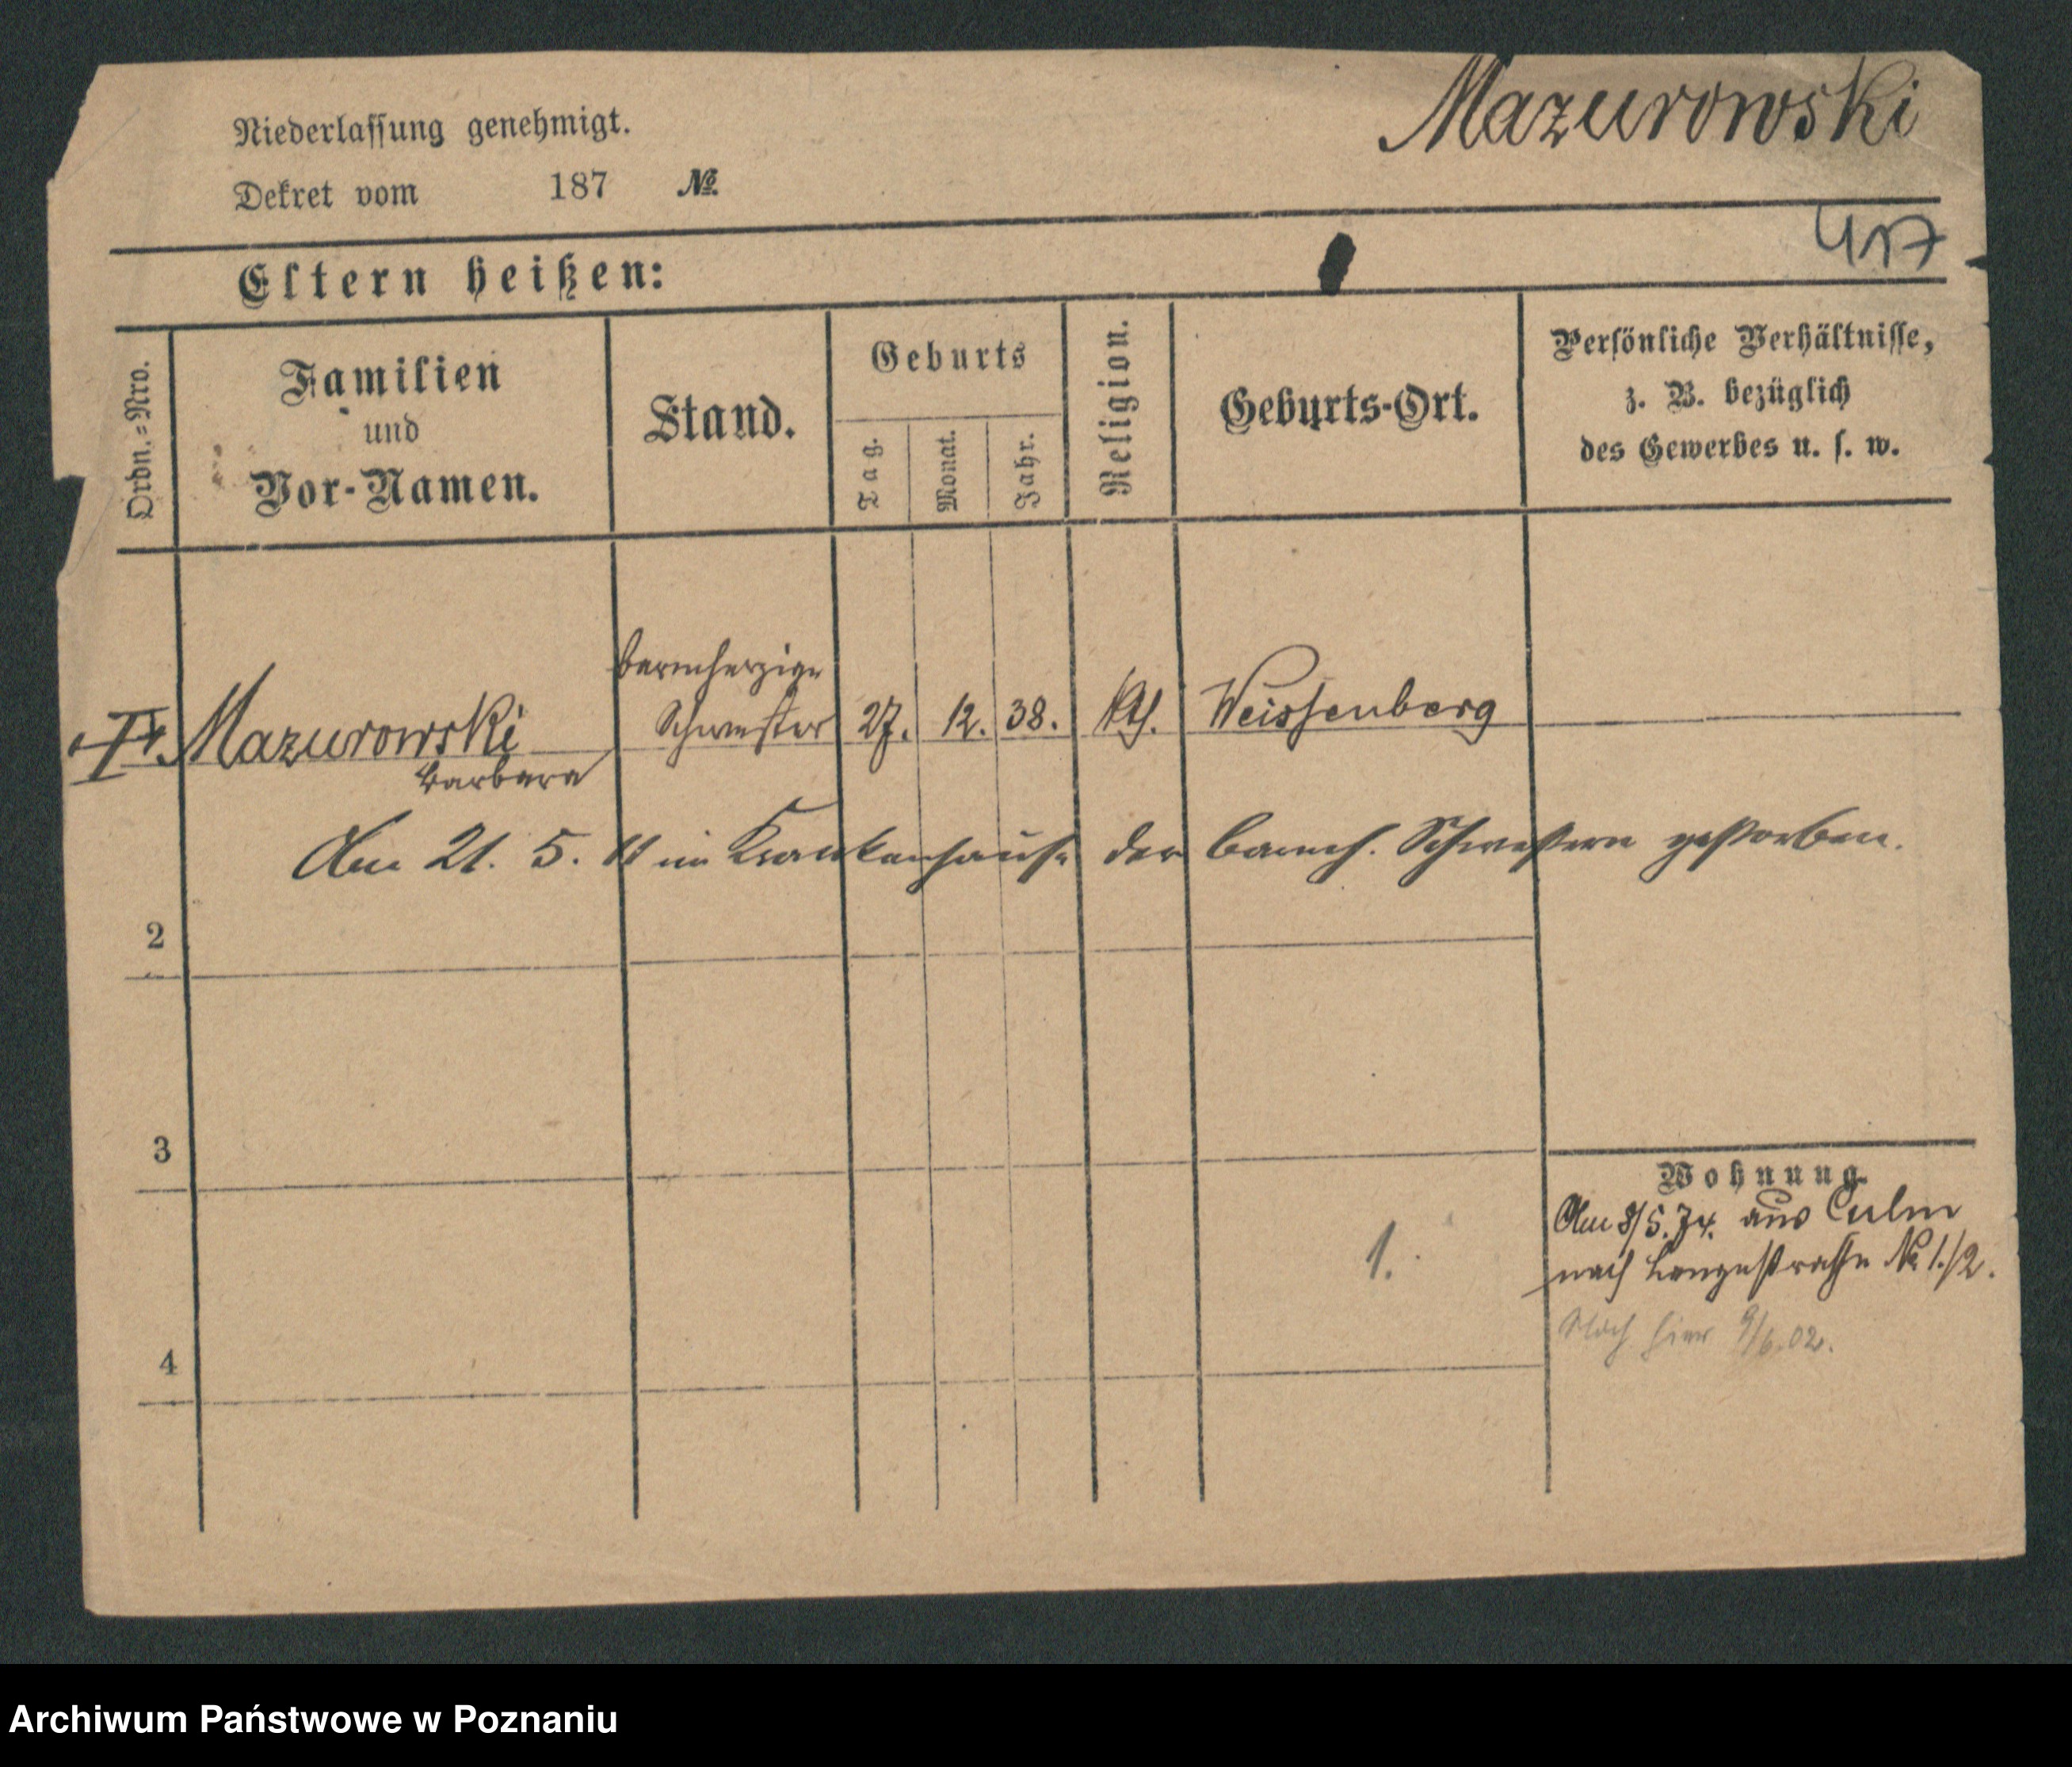 Mazurowski
Niederlassung genehmigt.
Dekret vom 187 №
417
Eltern heißen:
Ordn.=Nro.
Familien
und
Vor-Namen.
Stand.
Geburts
Tag.
Monat.
Jahr.
Religion.
Geburts-Ort.
Persönliche Verhältnisse,
z. B. bezüglich
des Gewerbes u. s. w.
Mazurowski
Barbara
barmherzige
Schwester
27. 12. 38. kth. Weissenberg
Am 21. 5. 11 im Krankenhause der barmh. Schwestern gestorben.
2
3
4
1.
Wohnung.
Am 8/5.74. aus Culm
nach Langestraße № 1./2.
Noch hier 9/6.02.
Archiwum Państwowe w Poznaniu